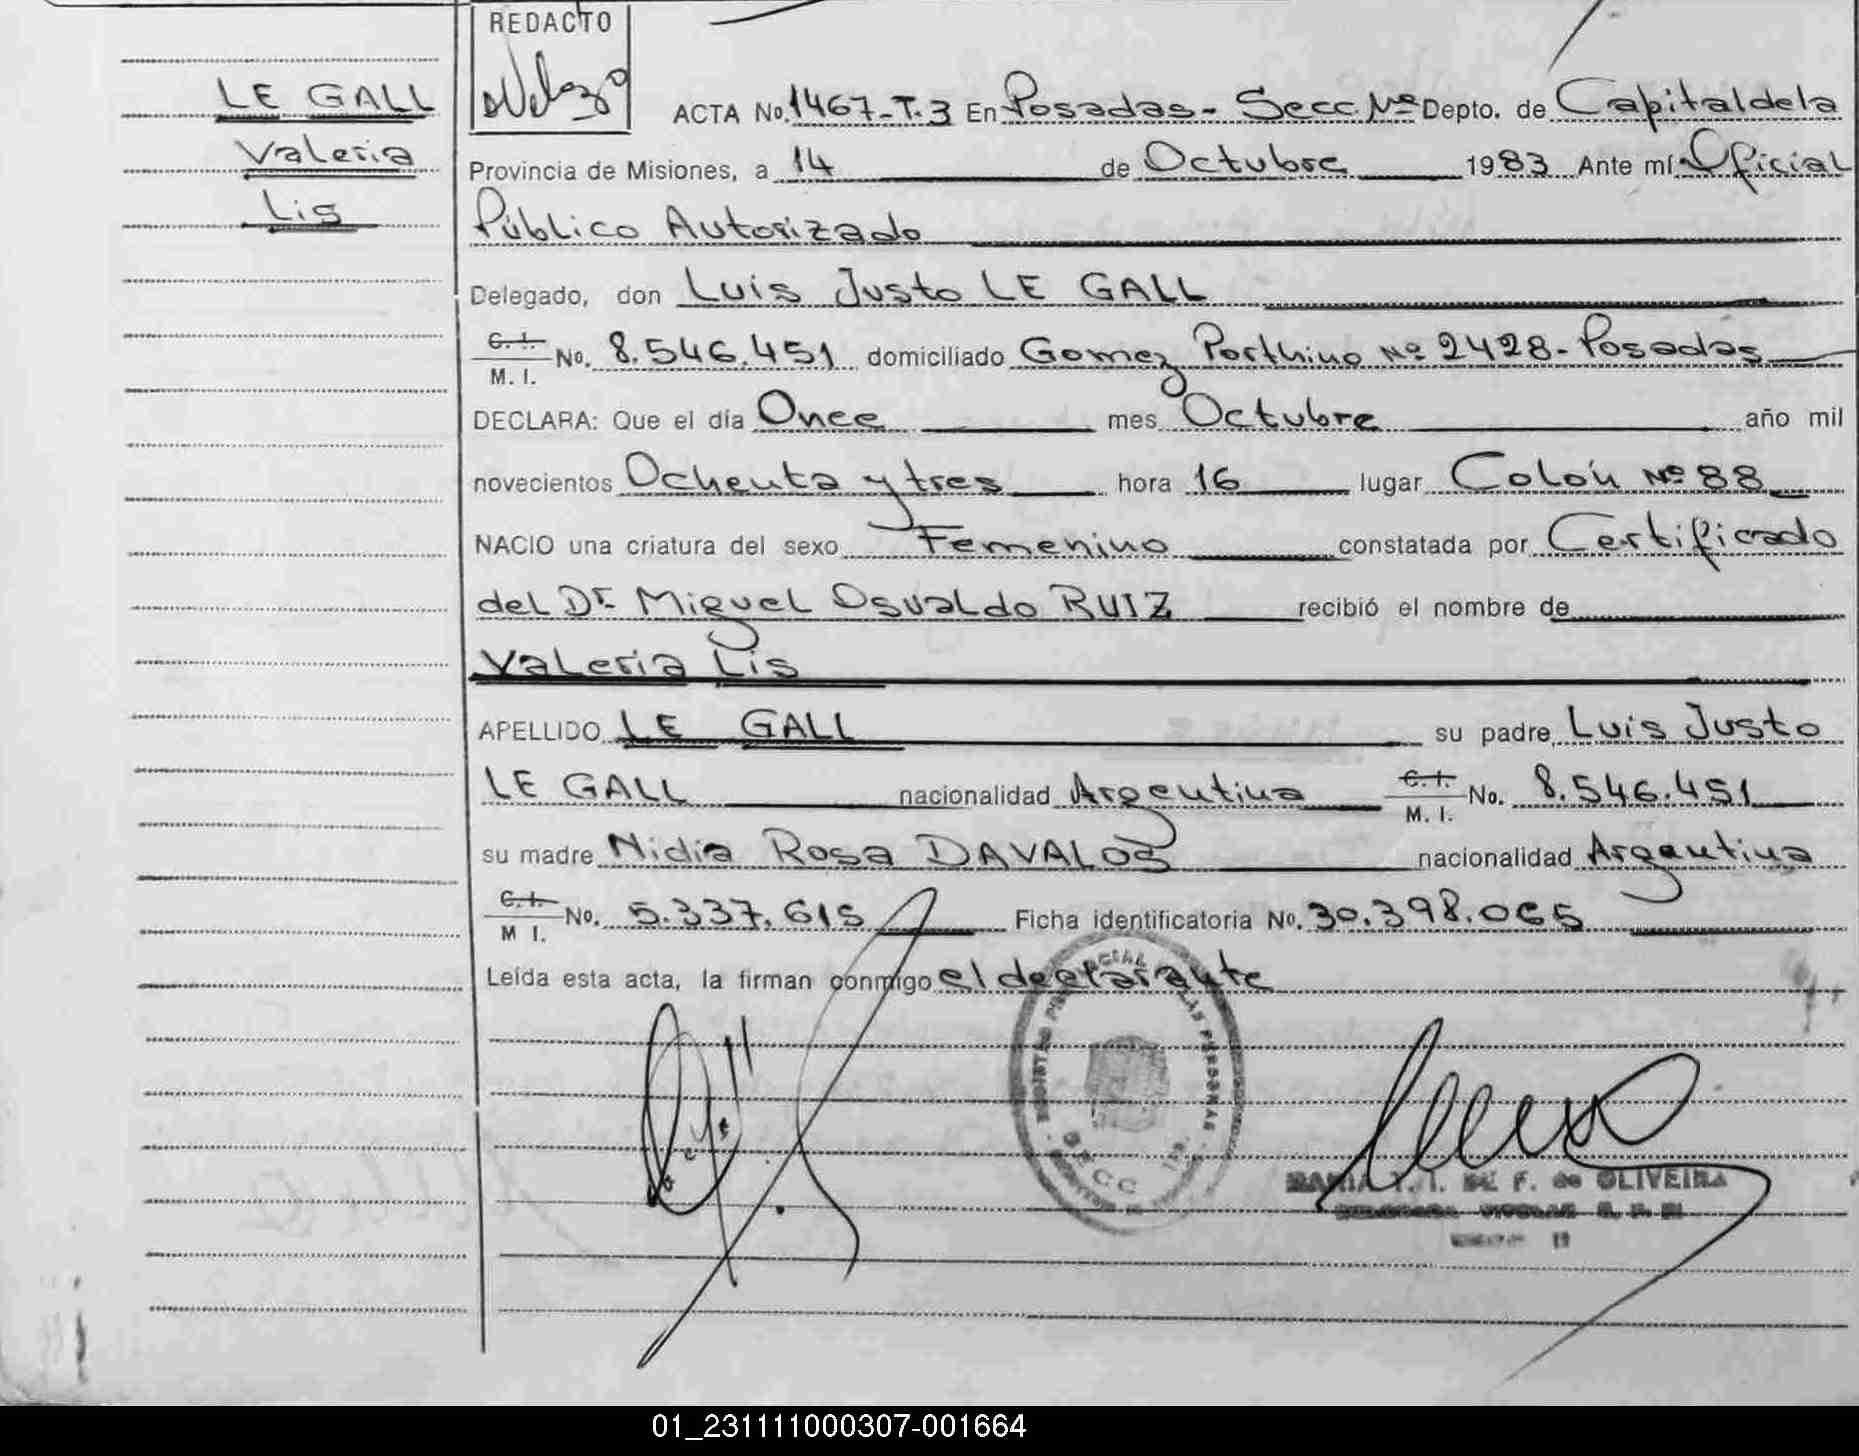 REDACTO
LE GALL
Valeria
Lis
ACTA No. 1467-T.3 En Posadas - Secc. Nº Depto. de Capital de la
Provincia de Misiones, a 14 de Octubre 1983 Ante mí Oficial
Público Autorizado
Delegado, don Luis Justo LE GALL
C.I. / M.I. No. 8.546.451 domiciliado Gomez Porthino Nº 2428-Posadas
DECLARA: Que el día Once mes Octubre año mil
novecientos Ochenta y tres hora 16 lugar Colón Nº 88
NACIO una criatura del sexo Femenino constatada por Certificado
del Dr. Miguel Osvaldo RUIZ recibió el nombre de
Valeria Lis
APELLIDO LE GALL su padre Luis Justo
LE GALL nacionalidad Argentina C.I. / M.I. No. 8.546.451
su madre Nidia Rosa DAVALOS nacionalidad Argentina
C.I. / M I. No. 5.337.615 Ficha identificatoria No. 30.398.065
Leída esta acta, la firman conmigo el declarante
DE F. de OLIVEIRA
01_231111000307-001664